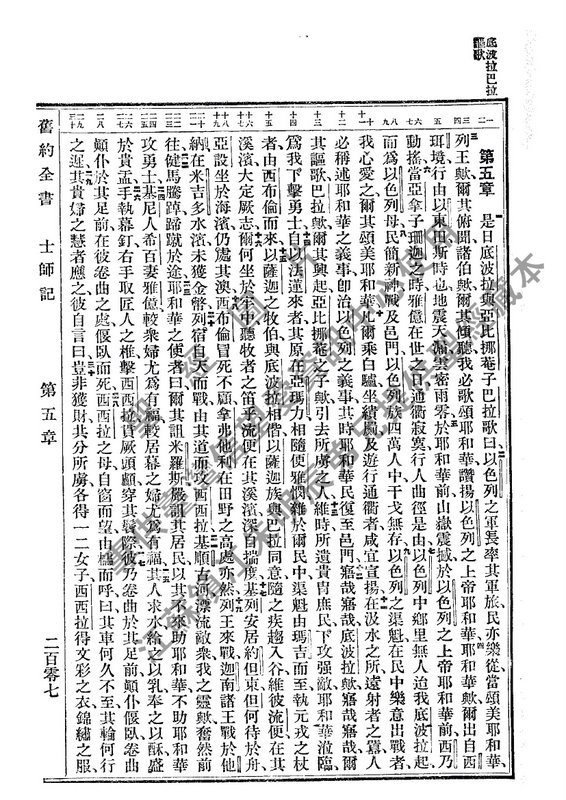 底波拉巴拉
謳歌
第五章 是日底波拉與亞比挪菴子巴拉歌曰、以色列之軍長率其軍旅民亦樂從當頌美耶和華、
列王歟爾其俯聞諸伯歟爾其傾聽我必歌頌耶和華讚揚以色列之上帝耶和華歟爾出自西
珥境行由以東田斯時也地震天漏雲密雨零於耶和華前山嶽震撼於以色列之上帝耶和華前西乃
動搖當亞拿子珊迦之時雅億在世之日通衢寂寞行人曲徑是由以色列中鄉里無人迨我底波拉起
而爲以色列母民簡新神戰及邑門以色列族四萬人中干戈無存以色列之渠魁在民中樂意出戰者
我心愛之爾其頌美耶和華爾乘白驢坐罽及遊行通衢者咸宜宣揚在汲水之所遠射者之囂人
必稱述耶和華之義事卽治以色列之義事其時耶和華民復至邑門寤哉寤哉底波拉歟寤哉寤哉
其謳歌巴拉歟爾其興起亞比挪菴之子歟引去所虜之人維時所遺貴冑庶民下攻强敵耶和華涖臨
爲我下擊勇士自以法蓮來者其原在亞瑪力相隨便雅憫雜於爾民中渠魁由瑪吉而至執元戎之杖
者由西布倫而來以薩迦之牧伯與底波拉相偕以薩迦族與巴拉同意隨之疾趨入谷維彼流便在其
溪濱大定厥志爾何坐於牢中聽牧者之笛乎流便在其溪濱深自揣度基列安居約但東但何待於舟
亞設坐於海濱仍處其澳西布倫冒死不顧拿弗他利在田野之高處亦然列王來戰迦南諸王戰於他
納在米吉多水濱未獲金幣列宿自天而戰由其道而攻西西拉基順古河漂流敵衆我之靈歟奮然前
往健馬騰踔蹄蹴於途耶和華之使者曰爾其詛米羅斯嚴詛其居民以其不來助耶和華不助耶和華
攻勇士基尼人希百妻雅億較衆婦尤爲有福較居幕之婦尤爲有福其人求水給之以乳奉之以酥盛
於貴盂手執幕釘右手取匠人之椎擊西西拉貫厥頭顱穿其鬢際彼乃卷曲於其足前顚仆偃臥卷曲
顚仆於其足前在彼卷曲之處偃臥而死西西拉之母自窗而望由櫺而呼曰其車何久不至其輪何行
之遲其貴婦之慧者應之彼自言曰豈非獲財其分所虜各得一二女子西西拉得文彩之衣錦繡之服
舊約全書 士師記 第五章 二百零七